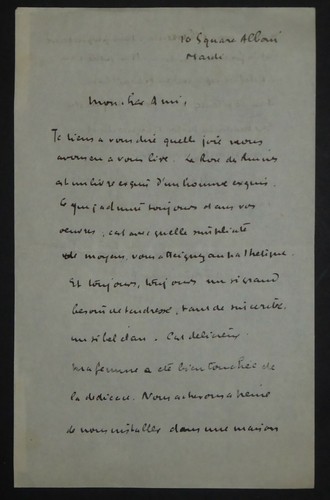 10 Square Alboni
Mardi
Mon cher Ami,
Je tiens à vous dire quelle joie nous
avons eu à vous lire. La Rose de
est un livre exquis d'un homme exquis.
Ce que j'admire toujours dans vos
oeuvres, c'est avec quelle simplicité
de moyens, vous atteignez au pathétique.
Et toujours, toujours un si grand
besoin de tendresse, tant de sincérité,
un si bel élan. C'est délicieux.
Ma femme a été bien touchée de
la dédicace. Nous achevons à peine
de nous installer dans une maison